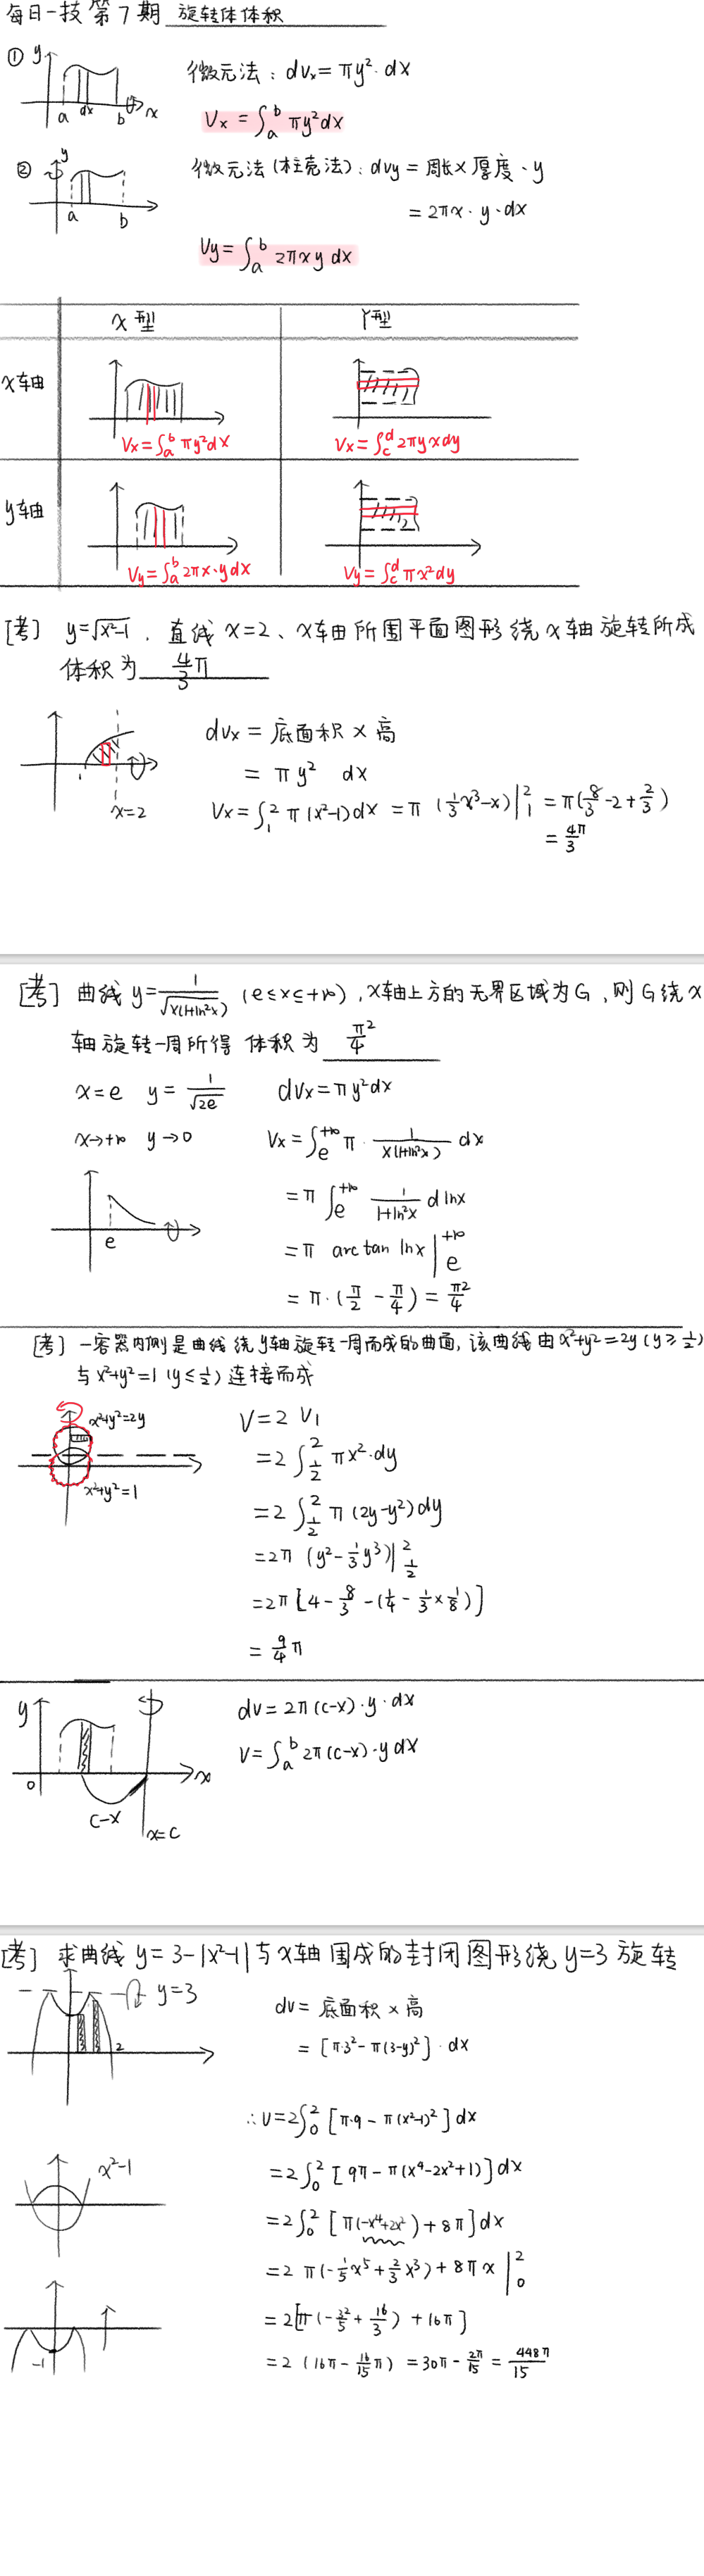 每日一技第7期 旋转体体积
① y
a dx b x
微元法：dVx = πy²·dx
Vx = ∫_a^b πy²dx
② y
a b
微元法(柱壳法)：dVy = 周长×厚度·y
= 2πx·y·dx
Vy = ∫_a^b 2πxy dx
x型 Y型
x轴
Vx=∫_a^b πy²dx Vx=∫_c^d 2πyxdy
y轴
Vy=∫_a^b 2πx·ydx Vy=∫_c^d πx²dy
[考] y=√(x²-1)，直线x=2、x轴所围平面图形绕x轴旋转所成
体积为 4/3 π
1 x=2
dVx = 底面积×高
= πy² dx
Vx=∫_1^2 π(x²-1)dx = π(1/3x³-x)|_1^2 = π(8/3-2+2/3)
= 4π/3
[考] 曲线y=1/√(x(1+ln²x)) (e≤x≤+∞)，x轴上方的无界区域为G，则G绕x
轴旋转一周所得体积为 π²/4
x=e y=1/√2e dVx=πy²dx
x→+∞ y→0 Vx=∫_e^{+∞} π·1/(x(1+ln²x)) dx
= π∫_e^{+∞} 1/(1+ln²x) d lnx
e
= π arctan lnx|_e^{+∞}
= π·(π/2 - π/4) = π²/4
[考] 一容器内侧是曲线绕y轴旋转一周而成的曲面，该曲线由x²+y²=2y(y≥1/2)
与x²+y²=1(y≤1/2)连接而成
x²+y²=2y
x²+y²=1
V=2 V₁
=2∫_{1/2}^2 πx²·dy
=2∫_{1/2}^2 π(2y-y²)dy
=2π(y²-1/3y³)|_{1/2}^2
=2π[4-8/3-(1/4-1/3×1/8)]
= 9/4 π
y
0 x
c-x
x=c
dV=2π(c-x)·y·dx
V=∫_a^b 2π(c-x)·ydx
[考] 求曲线y=3-|x²-1|与x轴围成的封闭图形绕y=3旋转
y=3
2
dV= 底面积×高
= [π·3²-π(3-y)²]·dx
∴V=2∫_0^2 [π·9-π(x²-1)²]dx
x²-1
=2∫_0^2 [9π-π(x⁴-2x²+1)]dx
=2∫_0^2 [π(-x⁴+2x²)+8π]dx
=2 π(-1/5x⁵+2/3x³)+8πx|_0^2
-1
=2[π(-32/5+16/3)+16π]
=2(16π-16/15π)=30π-2π/15=448π/15